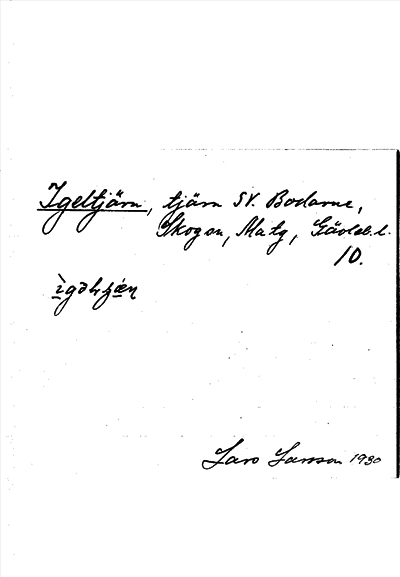 Igeltjärn, tjärn SV. Bodarne,
Skogen, Matg, Gävleb. l.
10.
Lars Larsson 1930